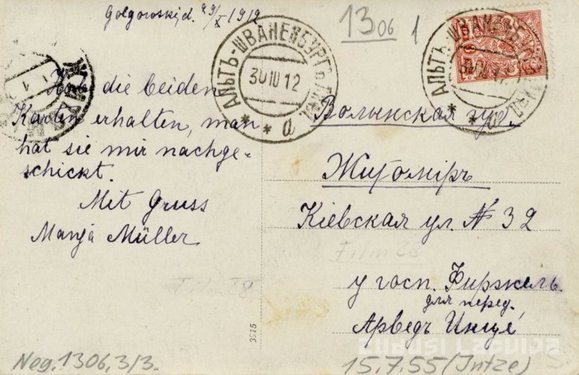 1306
1
АЛЬТЪ-ШВАНЕНБУРГЪ
30 10 12
а
АЛЬТЪ-ШВАНЕНБУРГЪ
die beiden
Karten erhalten, man
hat sie mir nachge-
schickt.
Mit Gruss
Manja Müller
Волынская губ.
Житомiръ
Кiевская ул. № 32
у госп. Фиржель
для перед.
Арведъ Инце
3975
Neg. 1306,3/3.
15.7.55 (Intze)